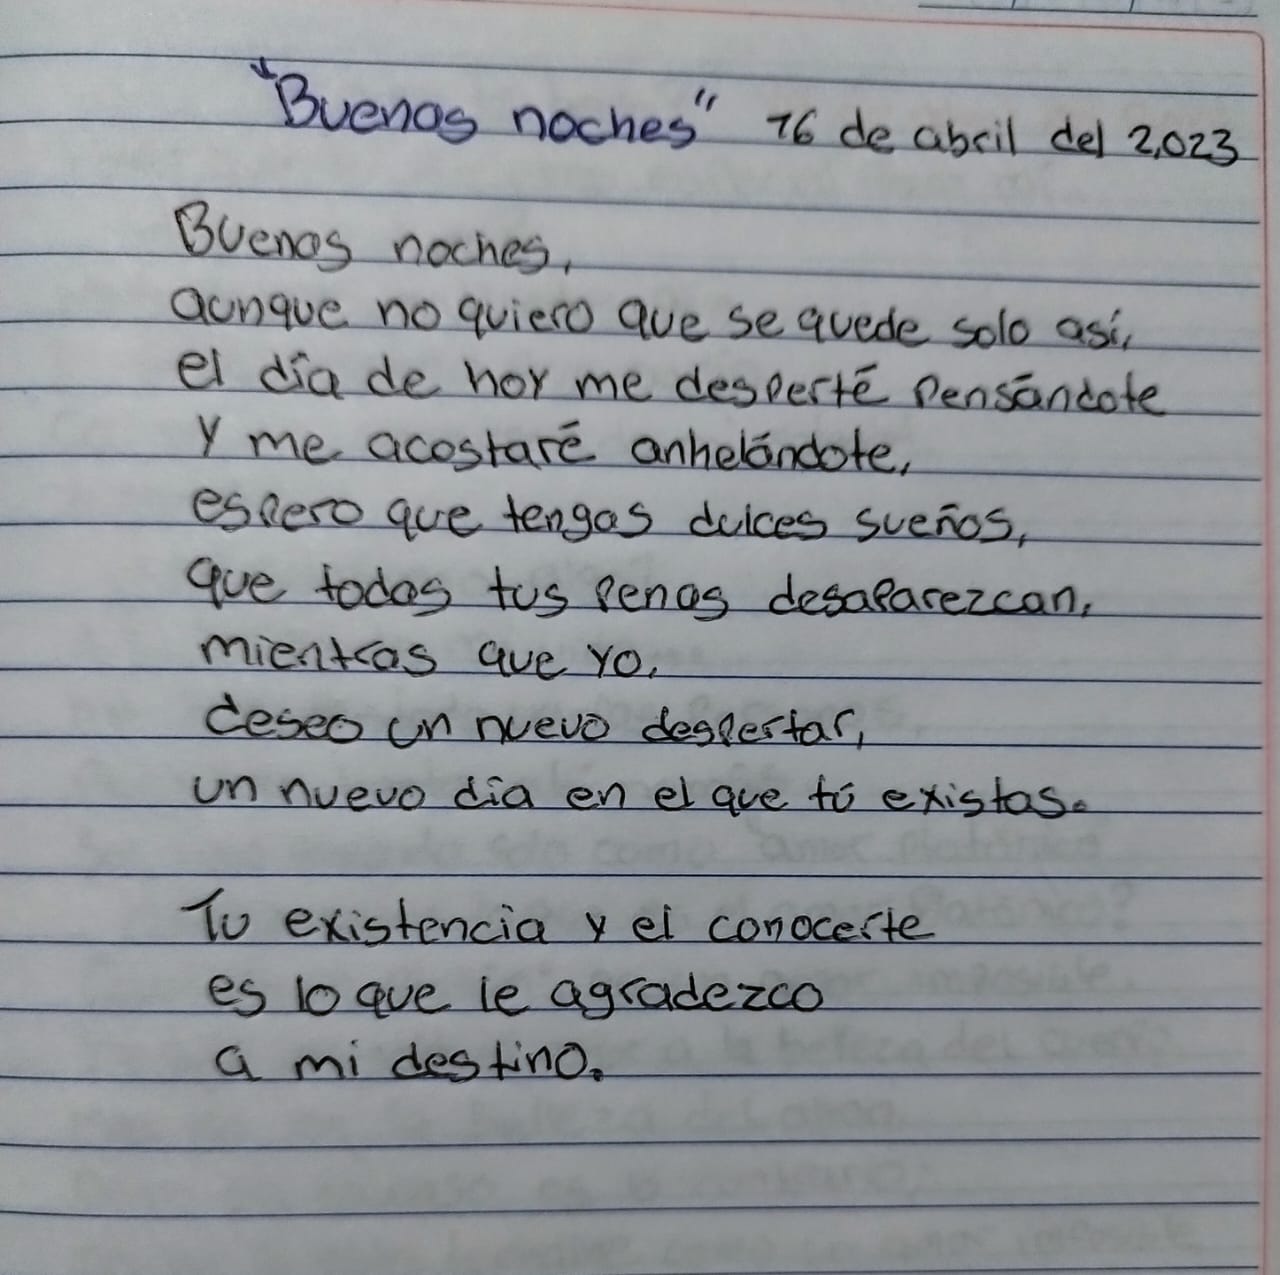 "Buenas noches" 16 de abril del 2,023
Buenas noches,
aunque no quiero que se quede solo así,
el día de hoy me desperté pensándote
y me acostaré anhelándote,
espero que tengas dulces sueños,
que todas tus penas desaparezcan,
mientras que yo,
deseo un nuevo despertar,
un nuevo día en el que tú existas.
Tu existencia y el conocerte
es lo que le agradezco
a mi destino.